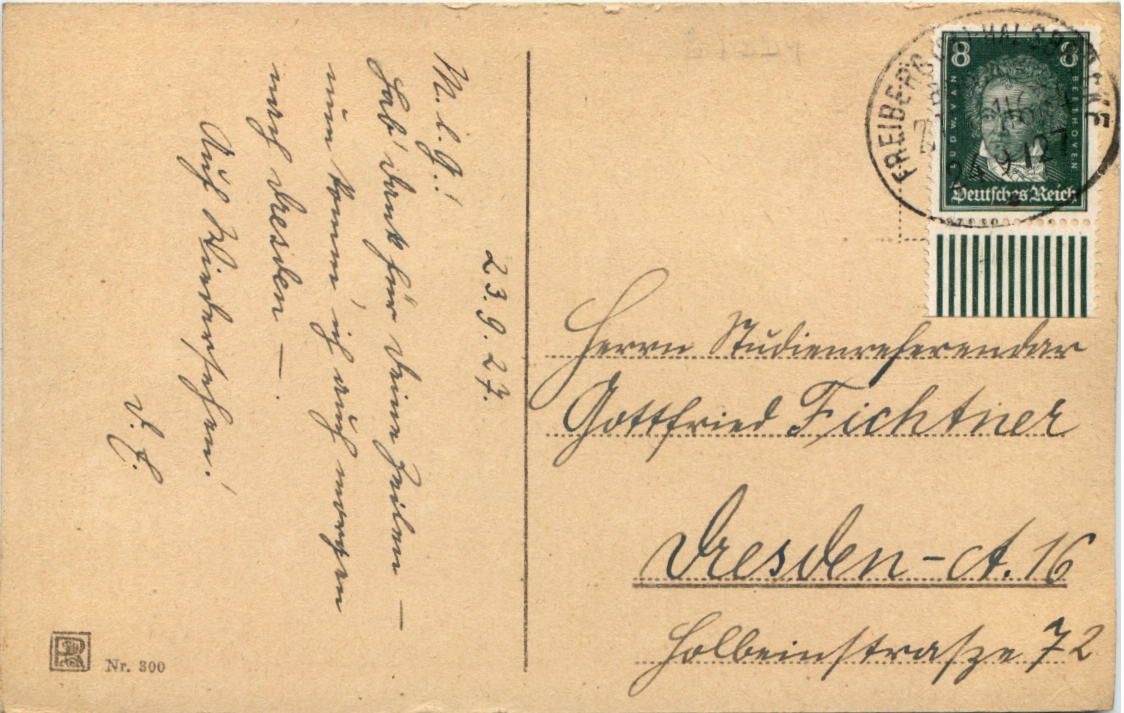 23.9.27.
M. l. G.!
Hab' Dank für Deine Zeilen —
nun komm' ich auch morgen
nach Dresden —.
Auf Wiedersehen!
D. H.
Nr. 300
8 8
LUDW. VAN BEETHOVEN
Deutsches Reich
FREIBERG
24 9 27
Herrn Studienreferendar
Gottfried Fichtner
Dresden-A. 16
Holbeinstrasze 72